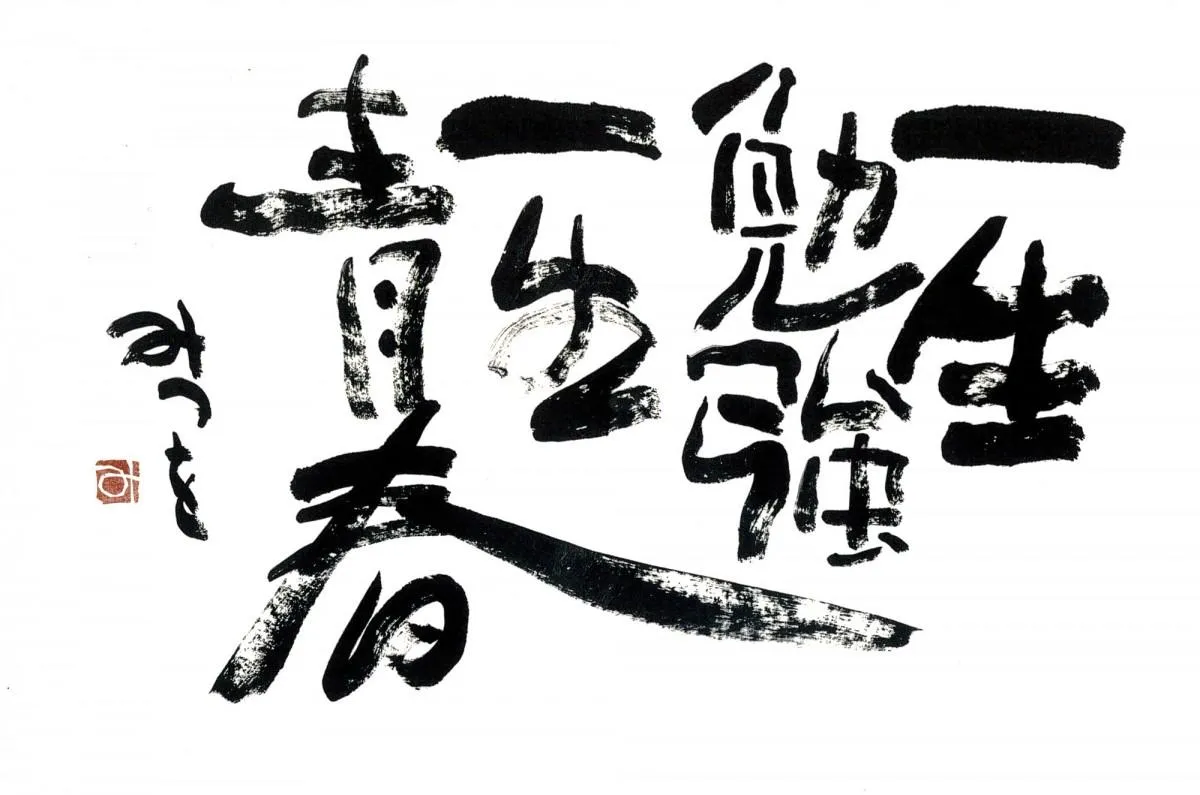 一生
勉強
一生
青春
みつを
み